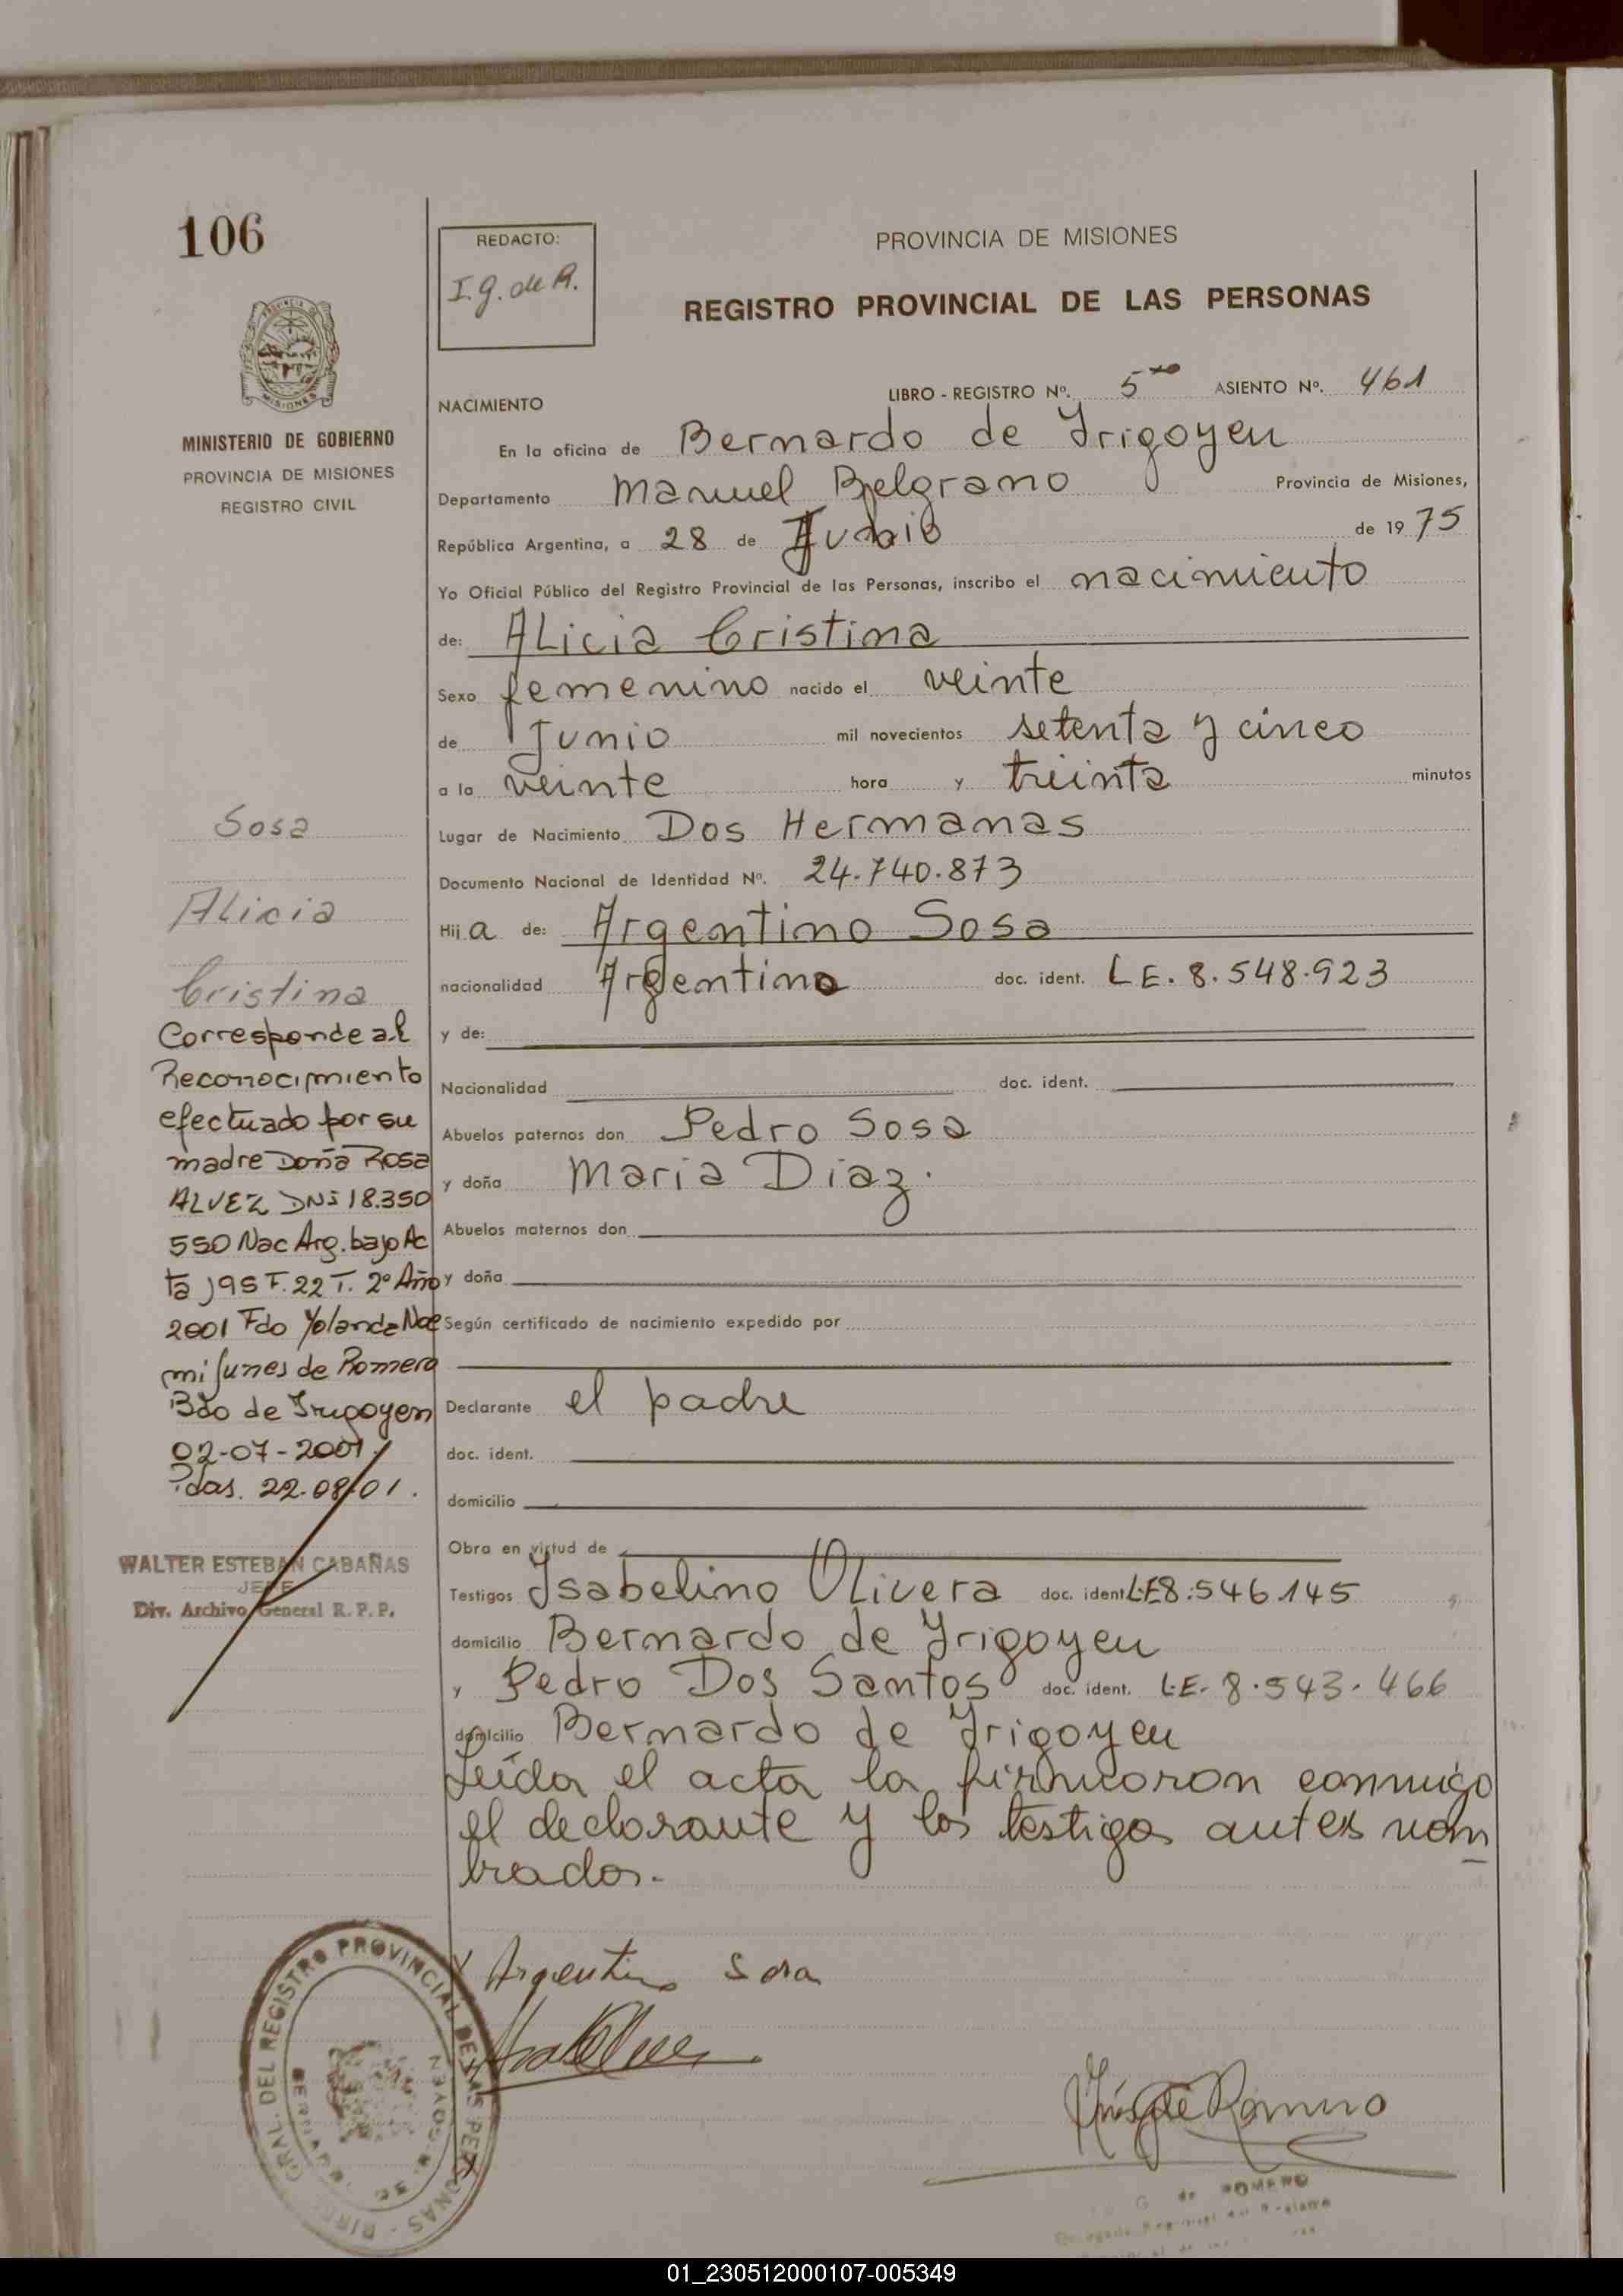 106
REDACTO:
I.g. de R.
PROVINCIA DE MISIONES
REGISTRO PROVINCIAL DE LAS PERSONAS
MINISTERIO DE GOBIERNO
PROVINCIA DE MISIONES
REGISTRO CIVIL
LIBRO - REGISTRO Nº. 5to ASIENTO Nº. 461
NACIMIENTO
En la oficina de Bernardo de Irigoyen
Departamento Manuel Belgrano Provincia de Misiones,
República Argentina, a 28 de Junio de 1975
Yo Oficial Público del Registro Provincial de las Personas, inscribo el nacimiento
de: ALicia Cristina
Sexo femenino nacido el veinte
de Junio mil novecientos setenta y cinco
a la veinte hora y treinta minutos
Lugar de Nacimiento Dos Hermanas
Documento Nacional de Identidad Nº. 24.740.873
Hija de: Argentino Sosa
nacionalidad Argentino doc. ident. LE. 8.548.923
y de:
Nacionalidad doc. ident.
Abuelos paternos don Pedro Sosa
y doña Maria Diaz.
Abuelos maternos don
y doña
Según certificado de nacimiento expedido por
Declarante el padre
doc. ident.
domicilio
Obra en virtud de
Testigos Isabelino OLivera doc. ident LE8.546.145
domicilio Bernardo de Irigoyen
y Pedro Dos Santos doc. ident. L.E. 8.543.466
domicilio Bernardo de Irigoyen
Leída el acta la firmaron conmigo
el declarante y los testigos antes nom
brados.-
Sosa
ALicia
Cristina
Corresponde al
Reconocimiento
efectuado por su
madre Doña Rosa
ALVEZ DNi 18.350
550 Nac Arg. bajo Ac
ta 195 F.22 T. 2º Año
2001 Fdo Yolanda Noe
mi Junes de Romero
Bdo de Irigoyen
02-07-2001
Pdas. 22.08.01.
WALTER ESTEBAN CABAÑAS
JEFE
Div. Archivo General R. P. P.
Argentino Sosa
GRAL. DEL REGISTRO PROVINCIAL DE LAS PERSONAS
G. de ROMERO
01_230512000107-005349